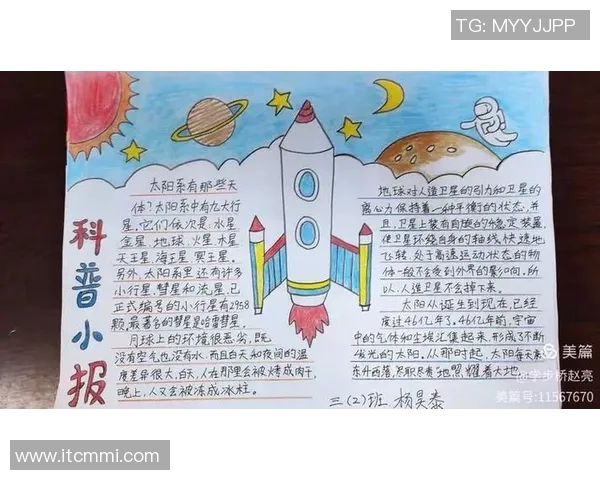 TG: MYYJJPP
科普小报
太阳系有那些天
体?太阳系中有九大行
星,它们依次是:水星
金星、地球、火星、木星
天王星、海王星、冥王星。
另外,太阳系里还有许多
小行星、彗星和流星,已
正式编号的小行星有2958
颗,最著名的彗星是哈雷彗星。
月球上的环境很恶劣,既
没有空气也没有水。而且白天和夜间的温
度差异很大,白天,人在那里会被烤成肉干,
晚上,人又会被冻成冰柱。
地球对人造卫星的引力和卫星的
离心力保持着一种平衡的状态,并
且,卫星上装有自旋的稳定装置,
使卫星环绕自身的轴线快速地
飞转,处于高速运动状态的物
体一般不会受到外界的影响,所
以,人造卫星不会掉下来。
太阳从诞生到现在,已经
度过46亿年了。46亿年前,宇宙
中的气体和尘埃汇集起来,形成了不断
发光的太阳,从那时起,太阳每天东
东升西落,尽职尽责地照耀着大地。
三(2)班 杨昊泰
美篇
@学步桥赵亮
美篇号:11567670
www.itcmmi.com